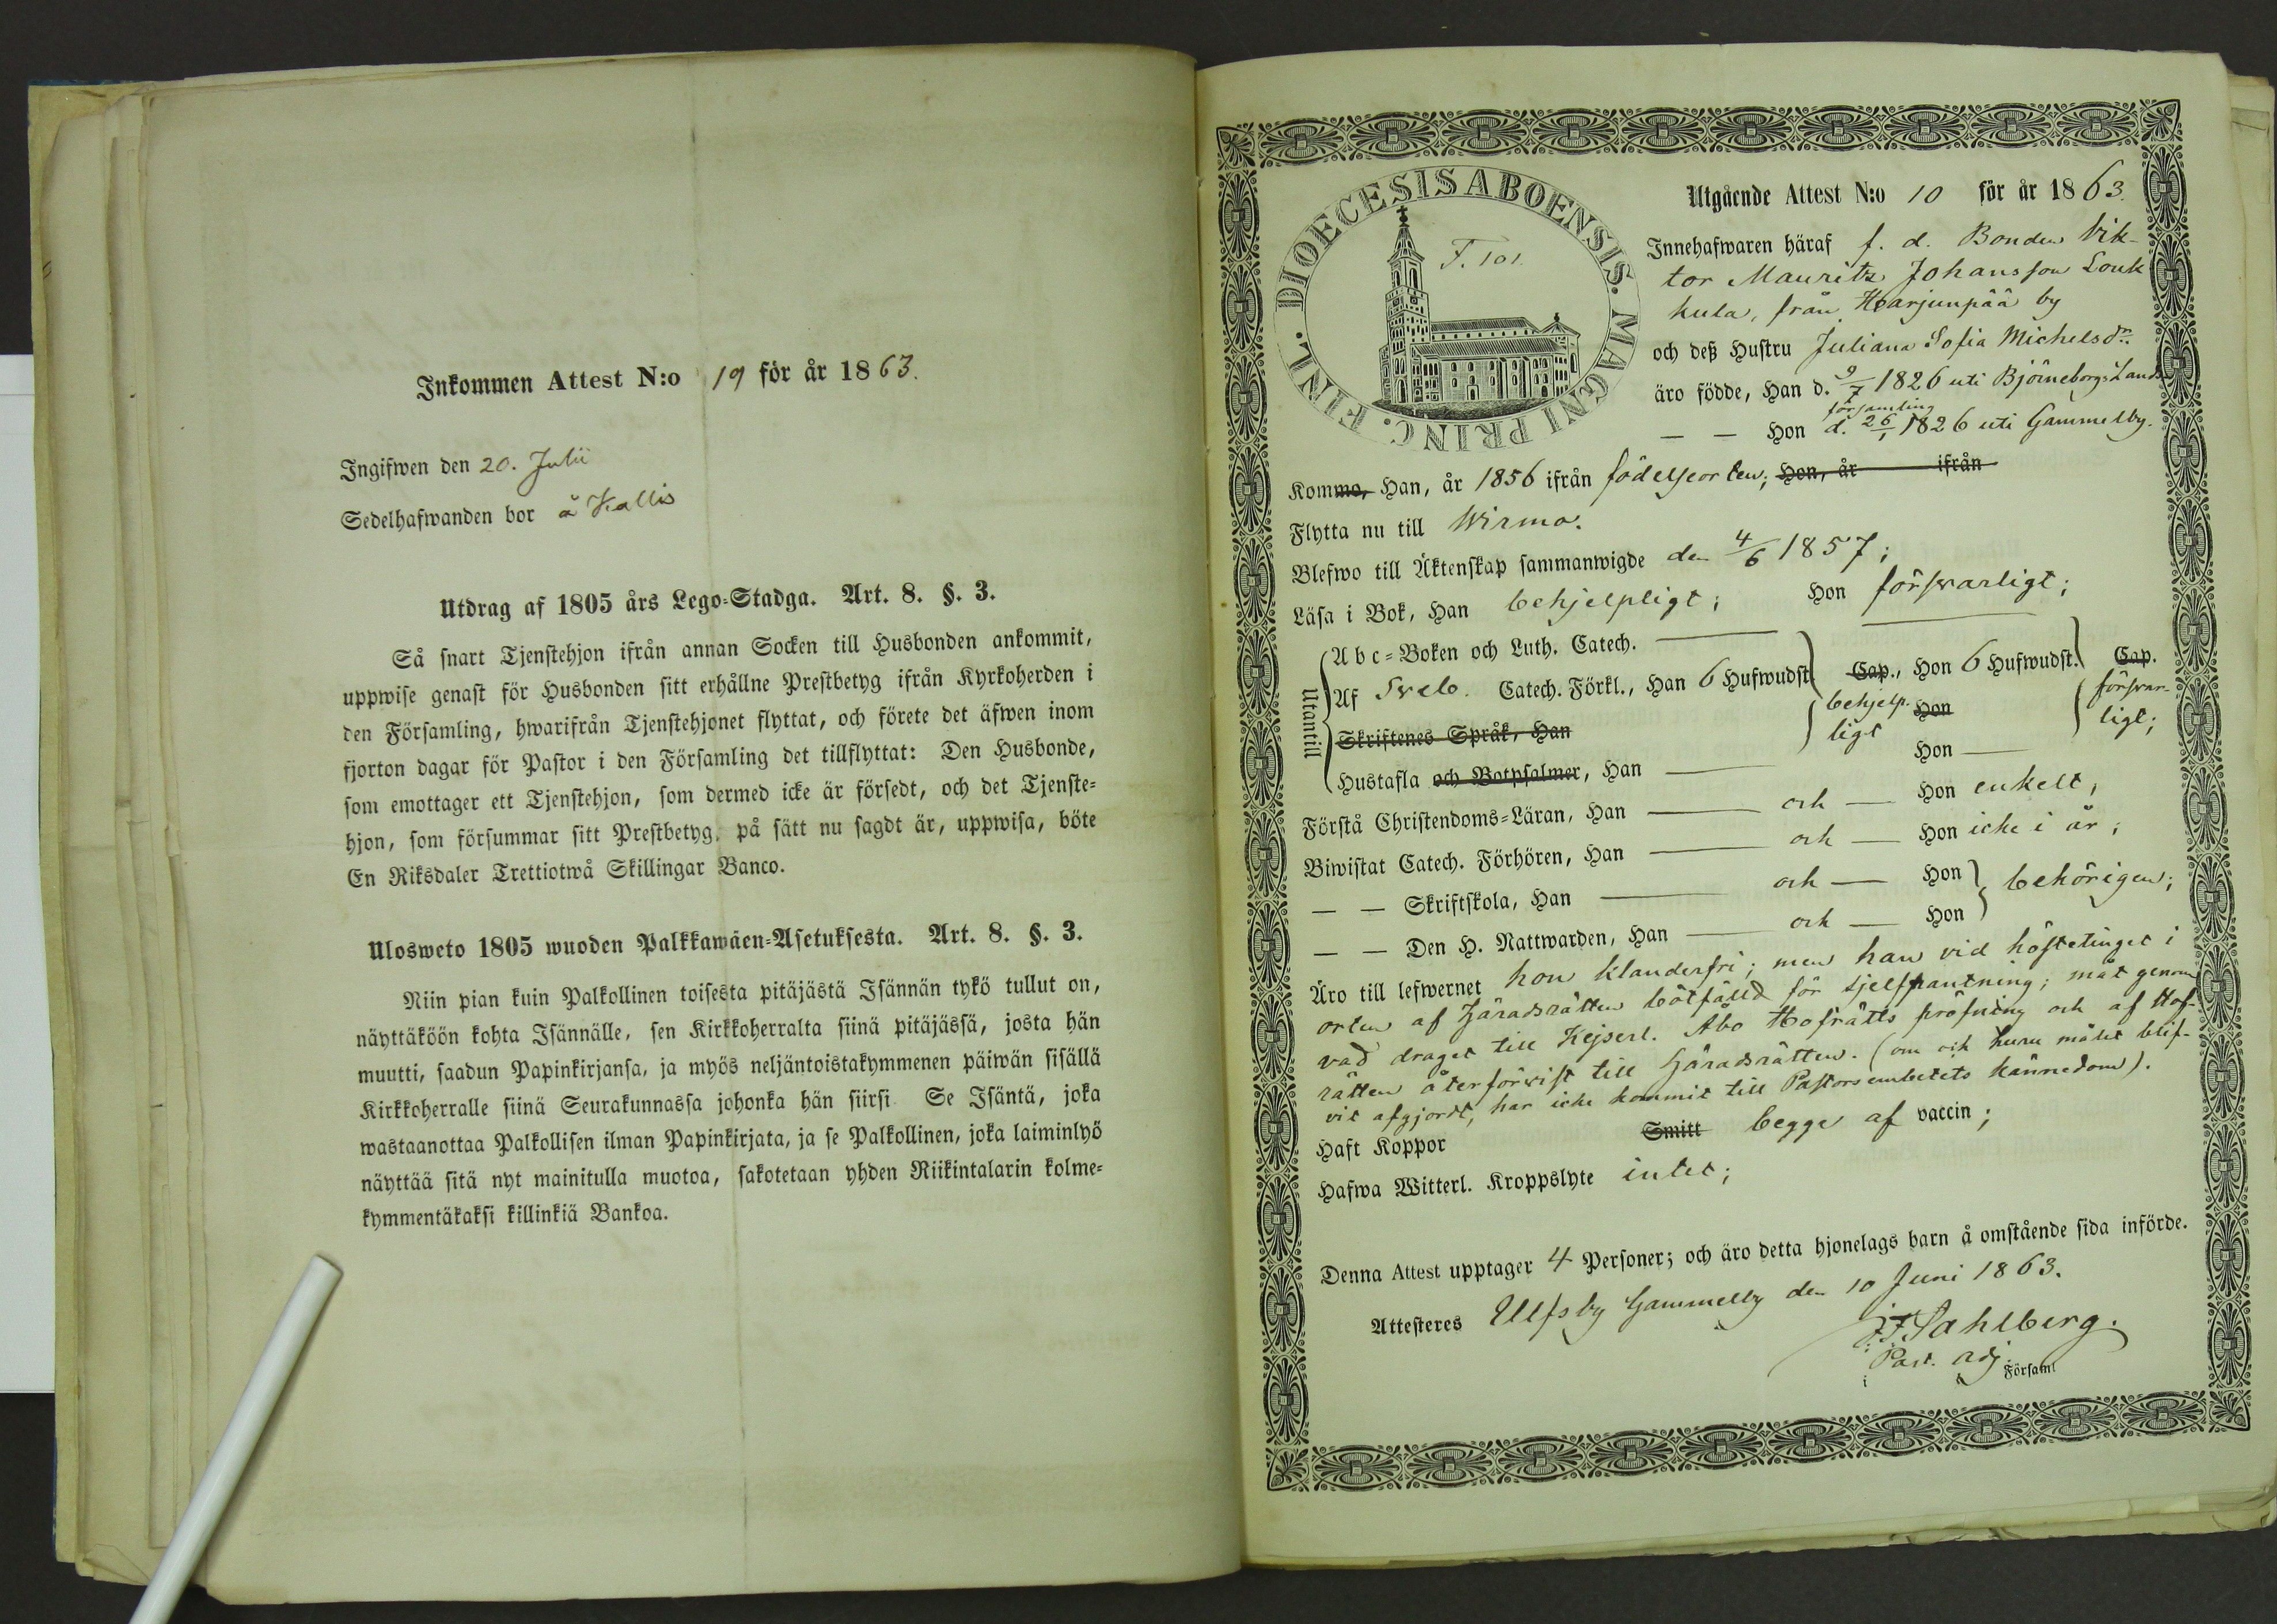 Inkommen Attest N:o 19 för år 1863.
Ingifwen den 20. Julii
Sedelhafwanden bor å Kallis
Utdrag af 1805 års Lego-Stadga. Art. 8. §. 3.
Så snart Tjenstehjon ifrån annan Socken till Husbonden ankommit,
uppwise genast för Husbonden sitt erhållne Prestbetyg ifrån Kyrkoherden i
den Församling, hwarifrån Tjenstehjonet flyttat, och förete det äfwen inom
fjorton dagar för Pastor i den Församling det tillflyttat: Den Husbonde,
som emottager ett Tjenstehjon, som dermed icke är försedt, och det Tjenste-
hjon, som försummar sitt Prestbetyg, på sätt nu sagdt är, uppwisa, böte
En Riksdaler Trettiotwå Skillingar Banco.
Ulosweto 1805 wuoden Palkkawäen-Asetuksesta. Art. 8. §. 3.
Niin pian kuin Palkollinen toisesta pitäjästä Isännän tykö tullut on,
näyttäköön kohta Isännälle, sen Kirkkoherralta siinä pitäjässä, josta hän
muutti, saadun Papinkirjansa, ja myös neljäntoistakymmenen päiwän sisällä
Kirkkoherralle siinä Seurakunnassa johonka hän siirsi Se Isäntä, joka
wastaanottaa Palkollisen ilman Papinkirjata, ja se Palkollinen, joka laiminlyö
näyttää sitä nyt mainitulla muotoa, sakotetaan yhden Riikintalarin kolme-
kymmentäkaksi killinkiä Bankoa.
DIOECESIS ABOENSIS. MAGNI PRINC. FINL.
F. 101.
Utgående Attest N:o 10 för år 1863.
Innehafwaren häraf f. d. Bonden Vik-
tor Mauritz Johansson Louk
kula, från Harjunpää by
och deß Hustru Juliana Sofia Michelsdr.
äro födde, Han d. 9/7 1826 uti Björneborgs Lands
församling
— — Hon d. 26/1 1826 uti Gammelby.
Kommo, Han, år 1856 ifrån födelseorten; Hon, år ifrån
Flytta nu till Wirmo.
Blefwo till Äktenskap sammanwigde den 4/6 1857;
Läsa i Bok, Han behjelpligt; Hon försvarligt;
Utantill
Abc-Boken och Luth. Catech.
Af Sveb. Catech. Förkl., Han 6 Hufwudst. Cap., Hon 6 Hufwudst. Cap.
Skriftenes Språk, Han behjelpligt Hon försvarligt;
Hustafla och Botpsalmer, Han — Hon —
Förstå Christendoms-Läran, Han — och — Hon enkelt,
Biwistat Catech. Förhören, Han — och — Hon icke i år;
— — Skriftskola, Han — och — Hon behörigen;
— — Den H. Nattwarden, Han — och — Hon
Äro till lefwernet hon klanderfri; men han vid höstetinget i
orten af Häradsrätten bötfälld för sjelfpantning; mål genom
vad draget till Kejserl. Åbo Hofrätts pröfning och af Hof-
rätten återförvist till Häradsrätten. (om och huru målet blif-
vit afgjordt, har icke kommit till Pastorsembetets kännedom).
Haft Koppor Smitt begge af vaccin;
Hafwa Witterl. Kroppslyte intet;
Denna Attest upptager 4 Personer; och äro detta hjonelags barn å omstående sida införde.
Attesteres Ulfsby Gammelby den 10 Juni 1863.
Sahlberg.
Past. adj.
i Församl